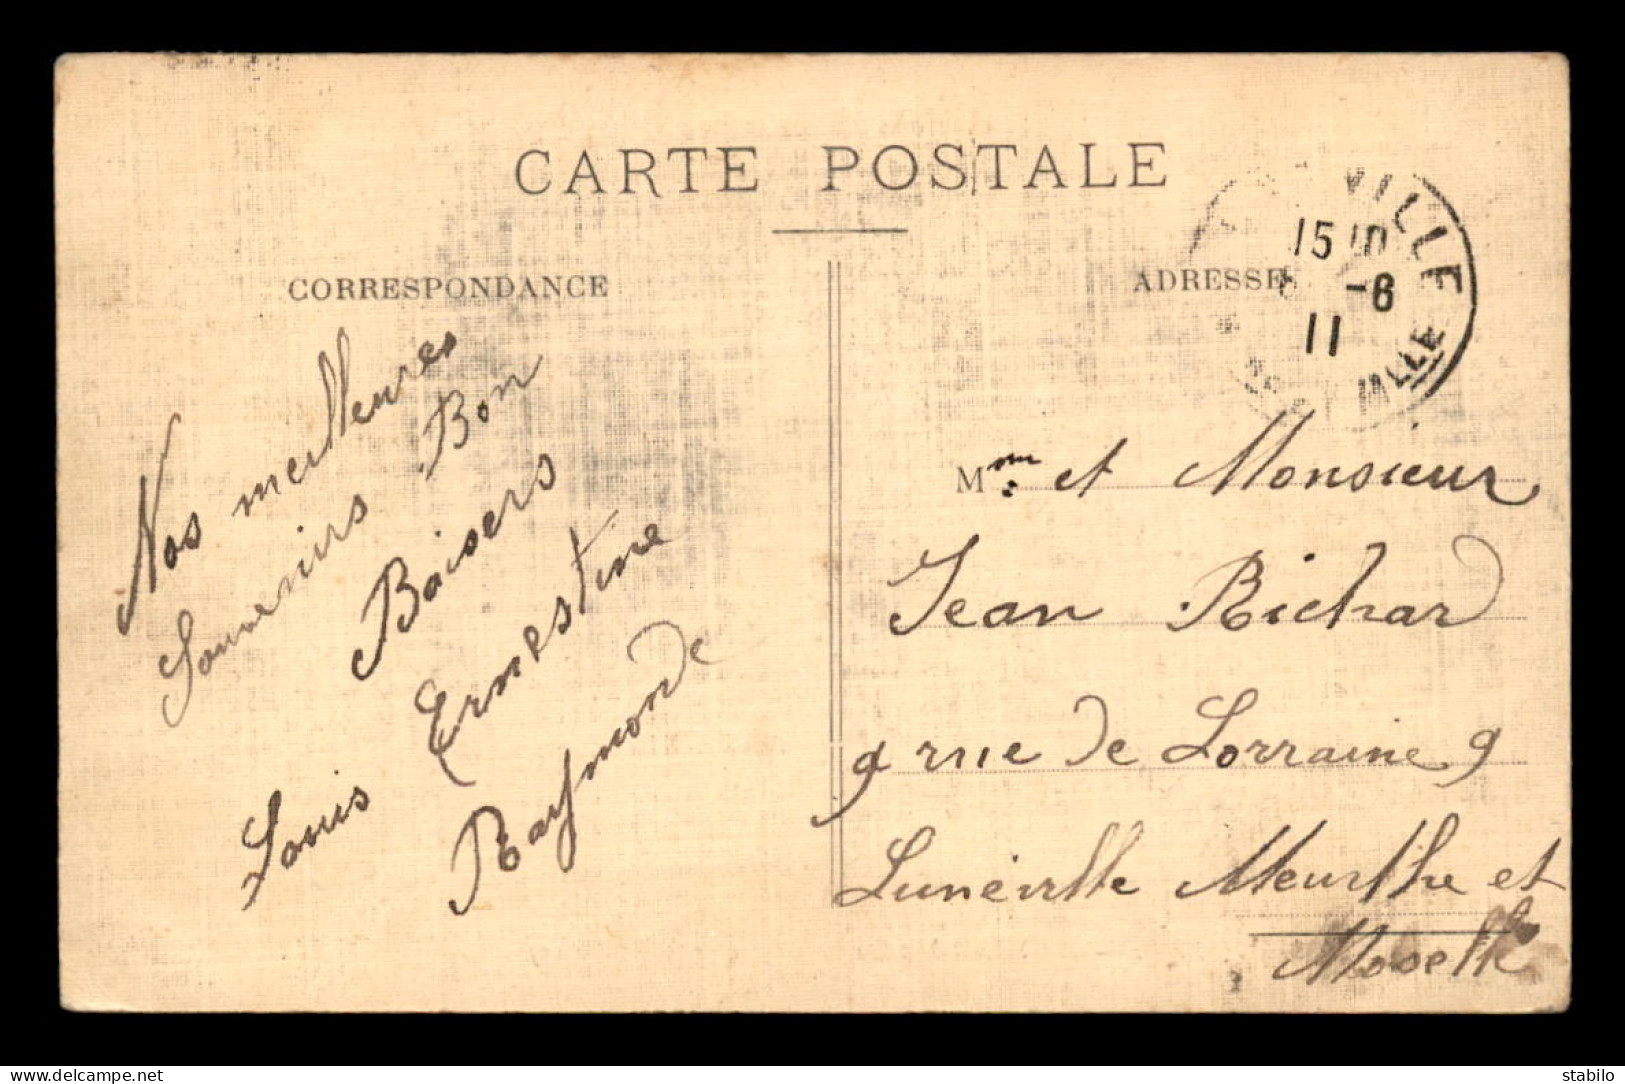 CARTE POSTALE
CORRESPONDANCE
Nos meilleures
Souvenirs Bon
Baisers
Louis Ernestine
Raymonde
ADRESSE
VILLE
15 10
-6
11
Mme et Monsieur
Jean Richard
9 rue de Lorraine 9
Lunéville Meurthe et
Moselle
www.delcampe.net
stabilo